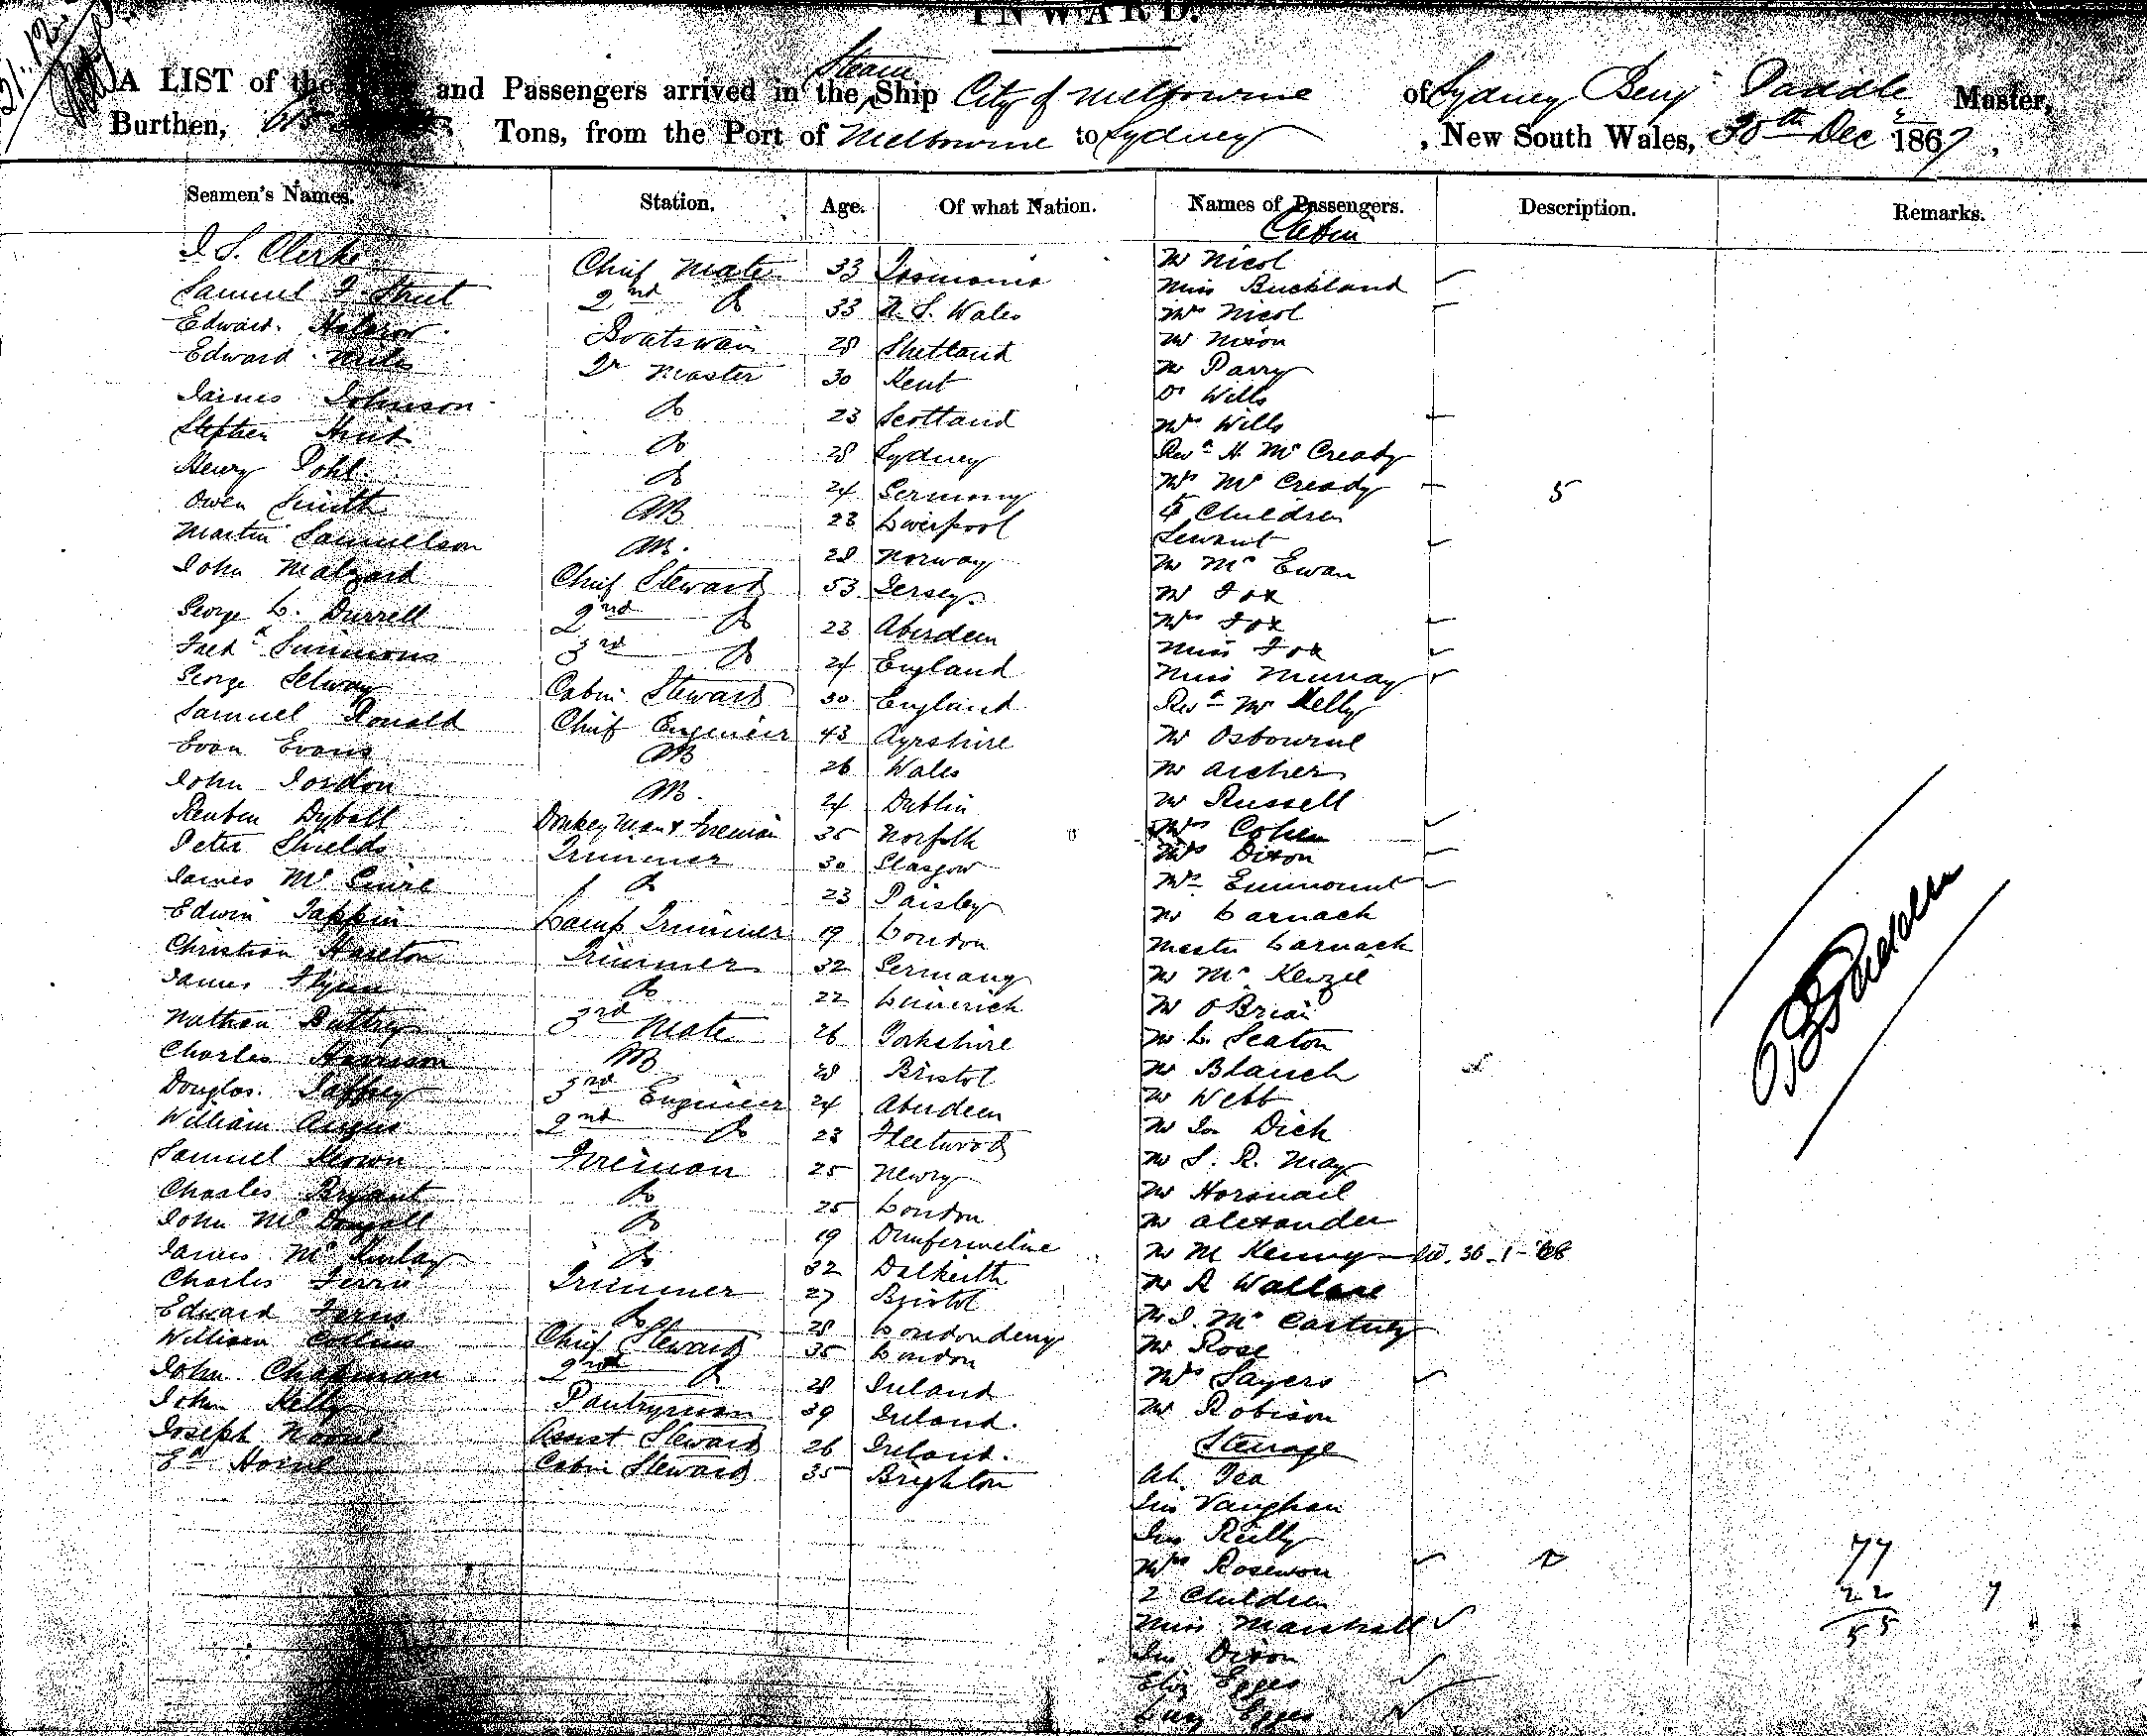 INWARD.
A LIST of the and Passengers arrived in the Steam Ship City of Melbourne of Sydney Benj Paddle Master,
Burthen, 615 Tons, from the Port of Melbourne to Sydney, New South Wales, 30th Dec 1867,
Seamen's Names. Station. Age. Of what Nation. Names of Passengers. Description. Remarks.
Cabin
J. S. Clerke Chief Mate 33 Tasmania Mr Nicol
Samuel F. Street 2nd Do 33 N. S. Wales Miss Buckland
Edward Halcrow Boatswain 28 Shetland Mrs Nicol
Edward Miles Qr Master 30 Kent Mr Nixon
James Johnson Do 23 Scotland Mr Parry
Stephen Hunt Do 28 Sydney Dr Wills
Henry Pohl Do 24 Germany Mrs Wills
Owen Smith AB 23 Liverpool Revd H. McCready
Martin Samuelson AB. 28 Norway Mrs McCready 5
John Malzard Chief Steward 53 Jersey 5 Children
George L. Durrell 2nd Do 23 Aberdeen Servant
Fredk Simmons 3rd Do 24 England Mr McEwan
George Selway Cabin Steward 30 England Mr Fox
Samuel Ronald Chief Engineer 43 Ayrshire Mrs Fox
Evan Evans AB 26 Wales Miss Fox
John Jordon AB. 24 Dublin Miss Murray
Reuben Dyball Donkey Man & Fireman 35 Norfolk Revd Mr Kelly
Peter Shields Trimmer 30 Glasgow Mr Osbourne
James McGuire Do 23 Paisley Mr Archer
Edwin Tappin Lamp Trimmer 19 London Mr Russell
Christian Hareton Trimmer 32 Germany Mrs Cohen
James Flynn Do 22 Limerick Mrs Dixon
Nathan Buttrey 3rd Mate 26 Yorkshire Mrs Emmount
Charles Harrison AB 28 Bristol Mr Larnach
Douglas Jaffrey 3rd Engineer 24 Aberdeen Master Larnach
William Angus 2nd Do 23 Fleetwood Mr McKenzie
Samuel Keown Fireman 25 Newry Mr O'Brien
Charles Bryant Do 25 London Mr L. Seaton
John McDougall Do 19 Dunfermeline Mr Blanch
James McKinlay Do 32 Dalkeith Mr Webb
Charles Ferris Trimmer 27 Bristol Mr Jn Dick
Edward Ferris Do 28 Londonderry Mr S. R. May
William Collins Chief Steward 35 London Mr Horsnail
John Chapman 2nd Do 28 Ireland Mr Alexander
John Kelly Pantryman 39 Ireland. Mr M Kenny 30-1-68
Joseph Assist Steward 26 Ireland. Mr R Wallace
Ed Horne Cabin Steward 35 Brighton Mr J. McCartney
Mr Rose
Mrs Sayers
Mr Robison
Steerage
Ah Tea
Jno Vaughan
Jno Reilly
Mrs Rosewon 2
2 Children
Miss Marshall
Jno Dixon
Eliz Egges
Lucy Egges
77
22 7
55